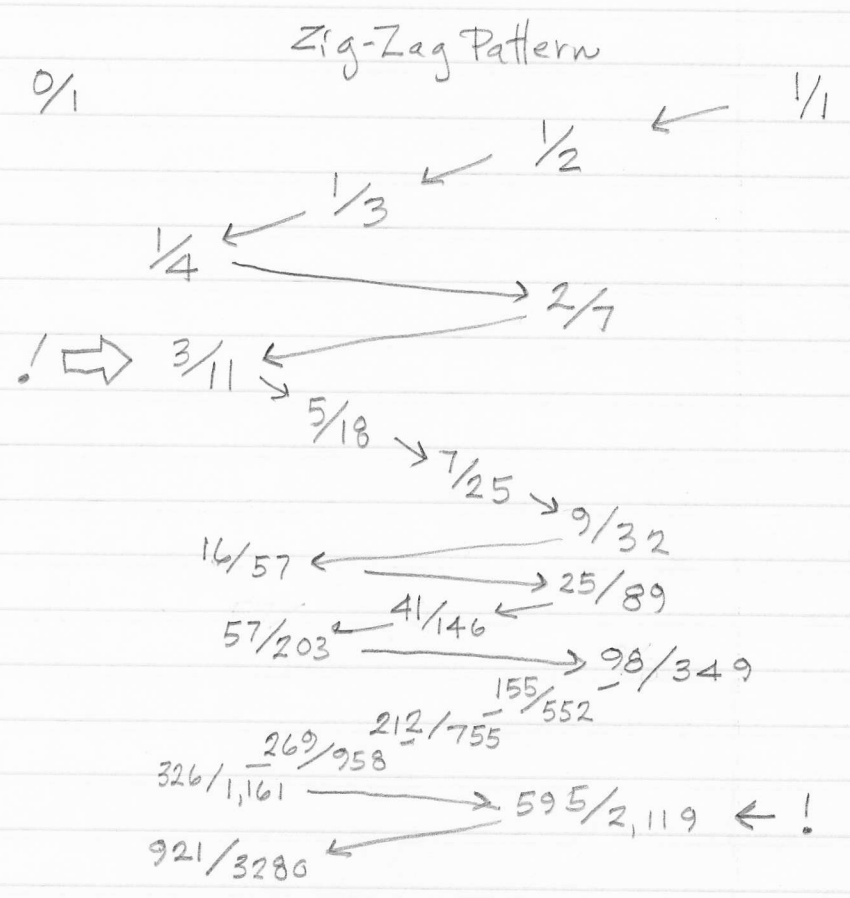 Zig-Zag Pattern
0/1 1/1
1/2
1/3
1/4
2/7
! 3/11
5/18
7/25
9/32
16/57
25/89
41/146
57/203
98/349
155/552
212/755
269/958
326/1,161
595/2,119 !
921/3280